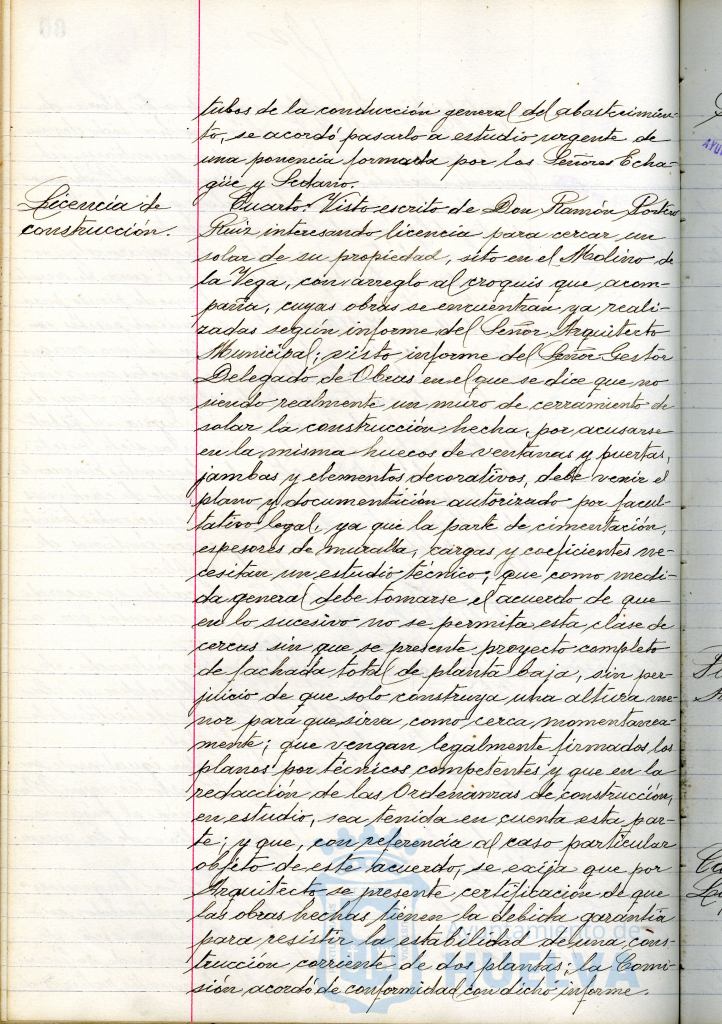 tubos de la conducción general del abastecimien-
to, se acordó pasarlo a estudio urgente de
una ponencia formada por los Señores Echa-
güe y Sedano.
Licencia de
construcción.
Cuarto. Visto escrito de Don Ramón
Ruiz interesando licencia para cercar un
solar de su propiedad, sito en el Molino de
la Vega, con arreglo al croquis que acom-
paña, cuyas obras se encuentran ya reali-
zadas según informe del Señor Arquitecto
Municipal; visto informe del Señor Gestor
Delegado de Obras en el que se dice que no
siendo realmente un muro de cerramiento de
solar la construcción hecha, por acusarse
en la misma huecos de ventanas y puertas,
jambas y elementos decorativos, debe venir el
plano y documentación autorizado por facul-
tativo legal, ya que la parte de cimentación,
espesores de muralla, cargas y coeficientes ne-
cesitan un estudio técnico; que como medi-
da general debe tomarse el acuerdo de que
en lo sucesivo no se permita esta clase de
cercas sin que se presente proyecto completo
de fachada total de planta baja, sin per-
juicio de que solo construya una altura me-
nor para que sirva como cerca momentanea-
mente; que vengan legalmente firmados los
planos por técnicos competentes y que en la
redacción de las Ordenanzas de construcción,
en estudio, sea tenida en cuenta esta par-
te; y que, con referencia al caso particular
objeto de este acuerdo, se exija que por
Arquitecto se presente certificación de que
las obras hechas tienen la debida garantía
para resistir la estabilidad de una cons-
trucción corriente de dos plantas; la Comi-
sión acordó de conformidad con dicho informe.
Ayuntamiento de
HUELVA